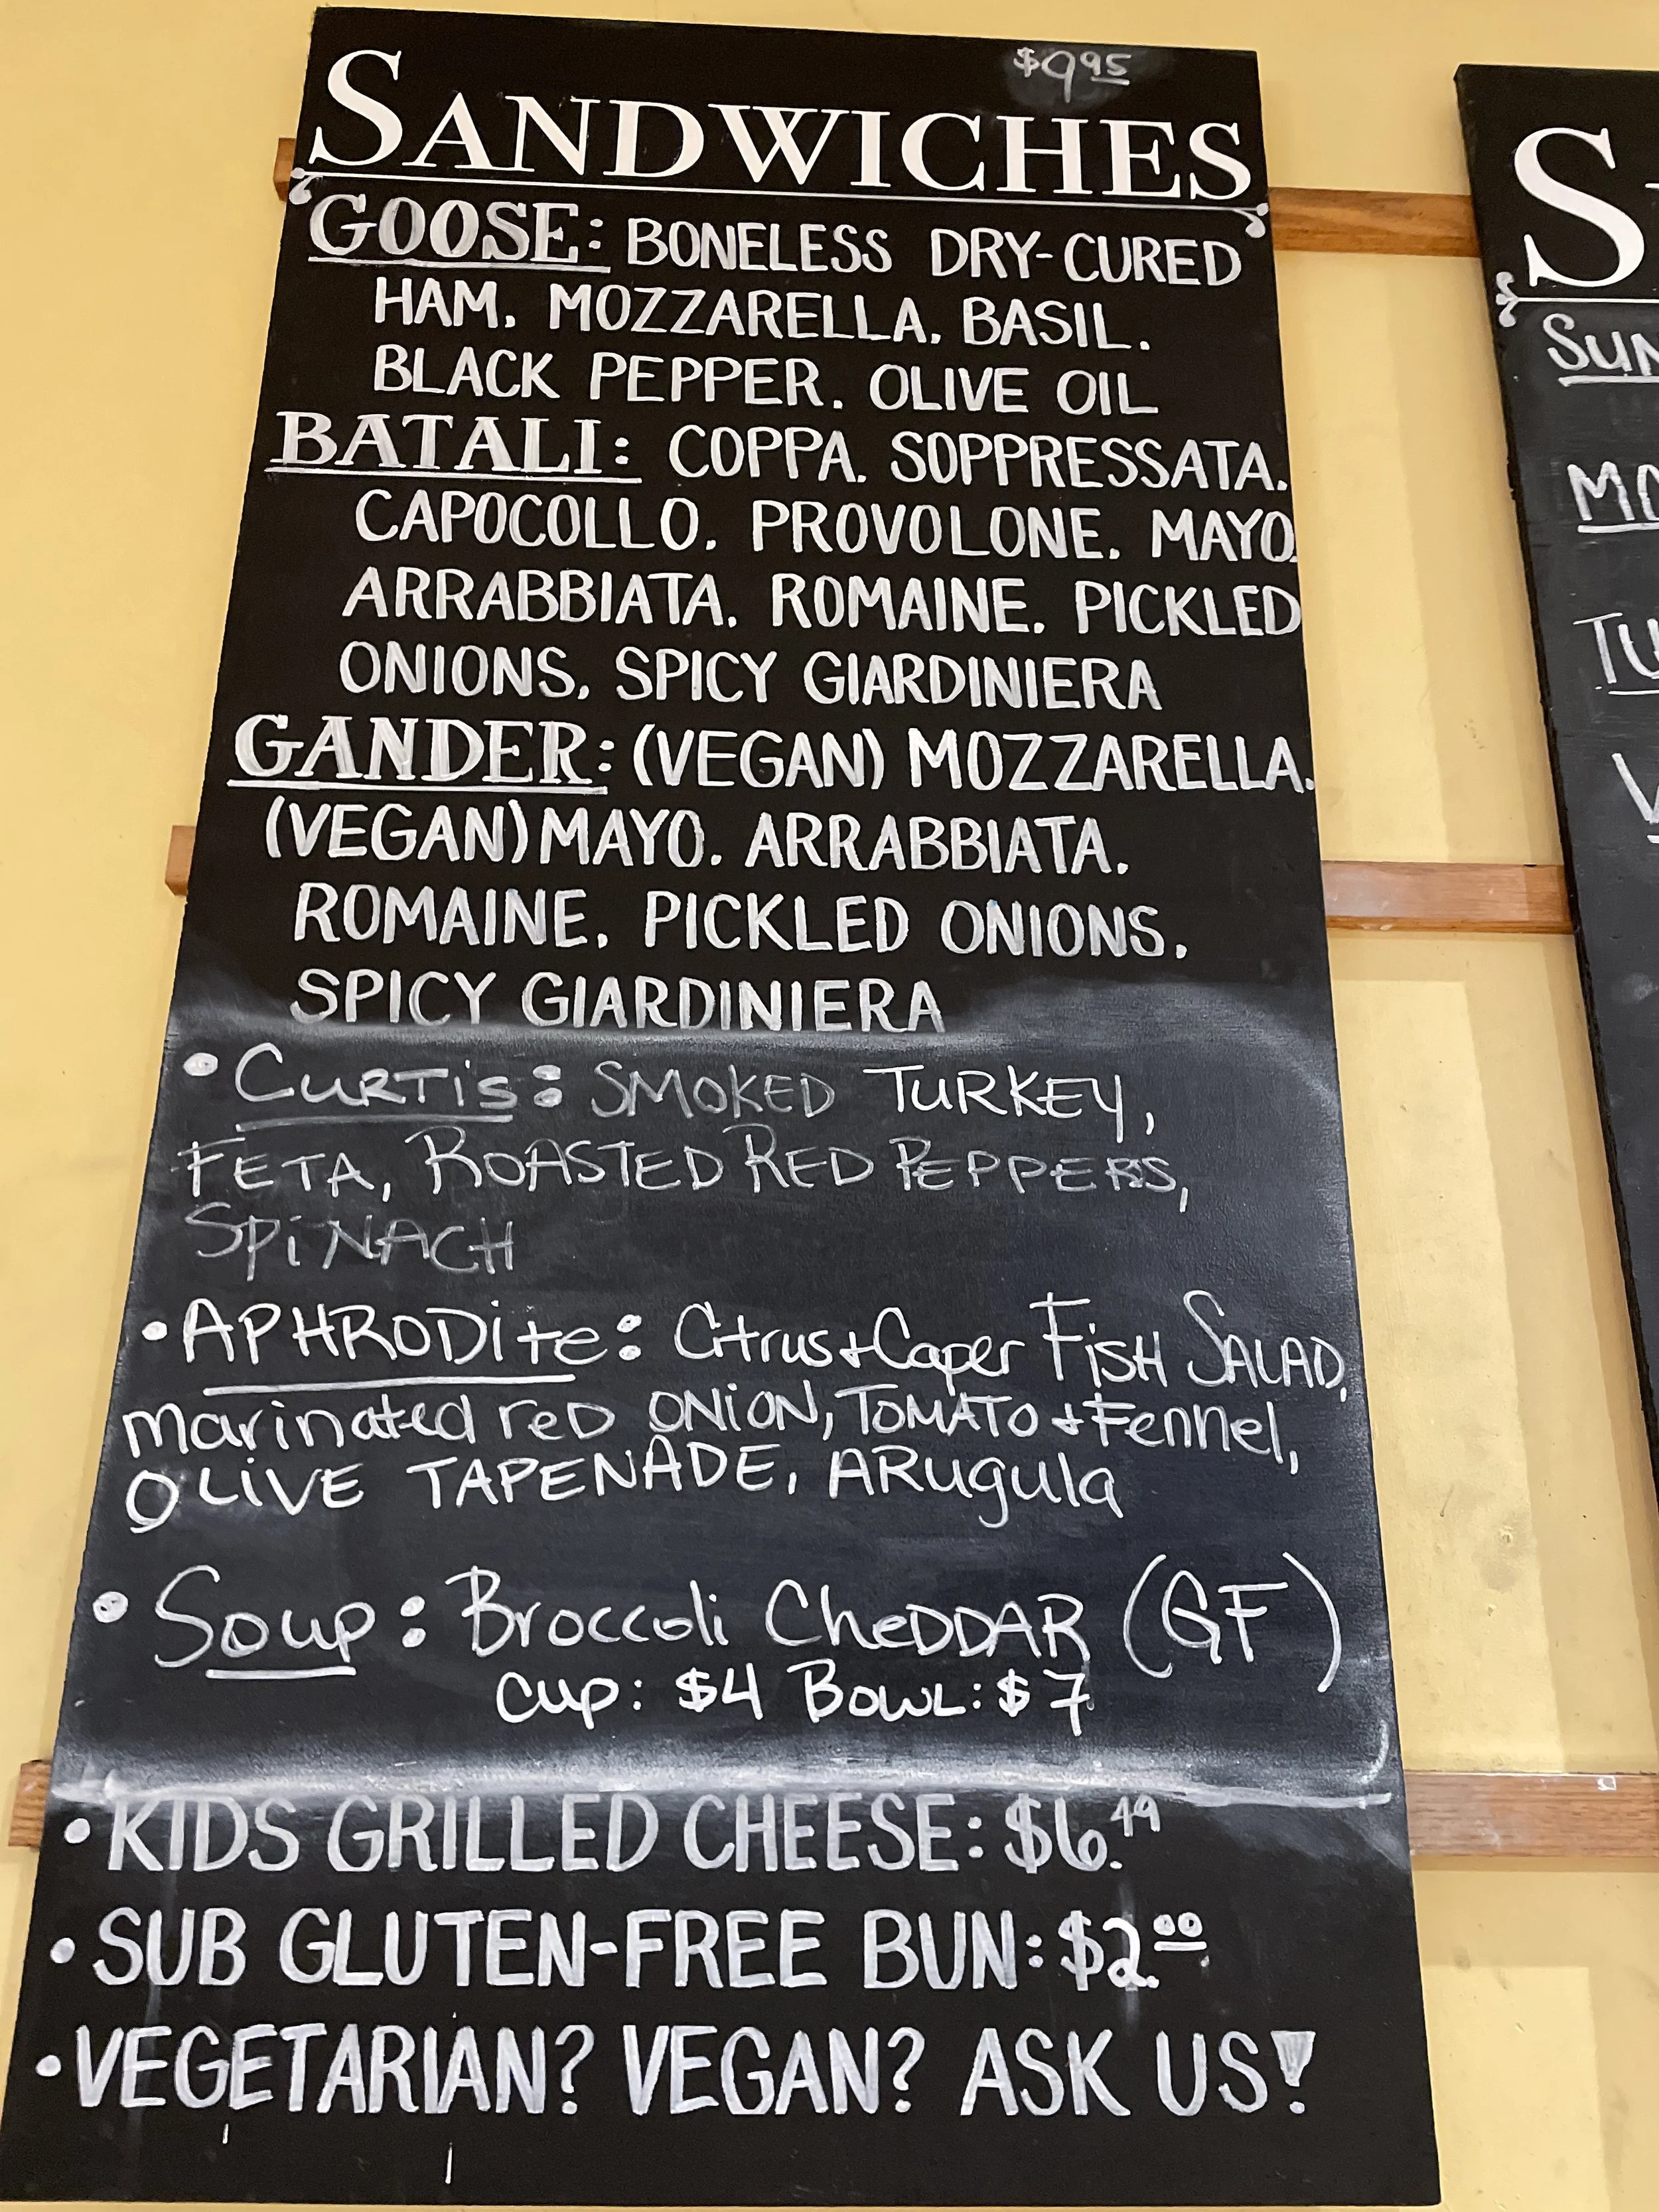 $9.95
SANDWICHES
GOOSE: BONELESS DRY-CURED
HAM. MOZZARELLA. BASIL.
BLACK PEPPER. OLIVE OIL
BATALI: COPPA. SOPPRESSATA.
CAPOCOLLO. PROVOLONE. MAYO.
ARRABBIATA. ROMAINE. PICKLED
ONIONS. SPICY GIARDINIERA
GANDER: (VEGAN) MOZZARELLA.
(VEGAN) MAYO. ARRABBIATA.
ROMAINE. PICKLED ONIONS.
SPICY GIARDINIERA
• CURTiS: SMOKED TURKEY,
FETA, ROASTED RED PEPPERS,
SPiNACH
• APHRODite: Citrus + Caper FiSH SALAD,
marinated reD ONiON, TOMATO + Fennel,
OLiVE TAPENADE, ARugula
• Soup: Broccoli CheDDAR (GF)
Cup: $4 BOWL: $7
• KIDS GRILLED CHEESE: $6.49
• SUB GLUTEN-FREE BUN: $2.00
• VEGETARIAN? VEGAN? ASK US!
S
SUN
MO
TU